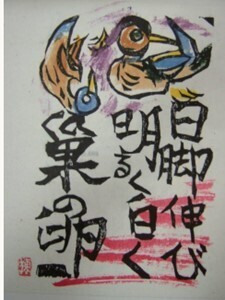 日脚伸び
明るく白く
巣の卵